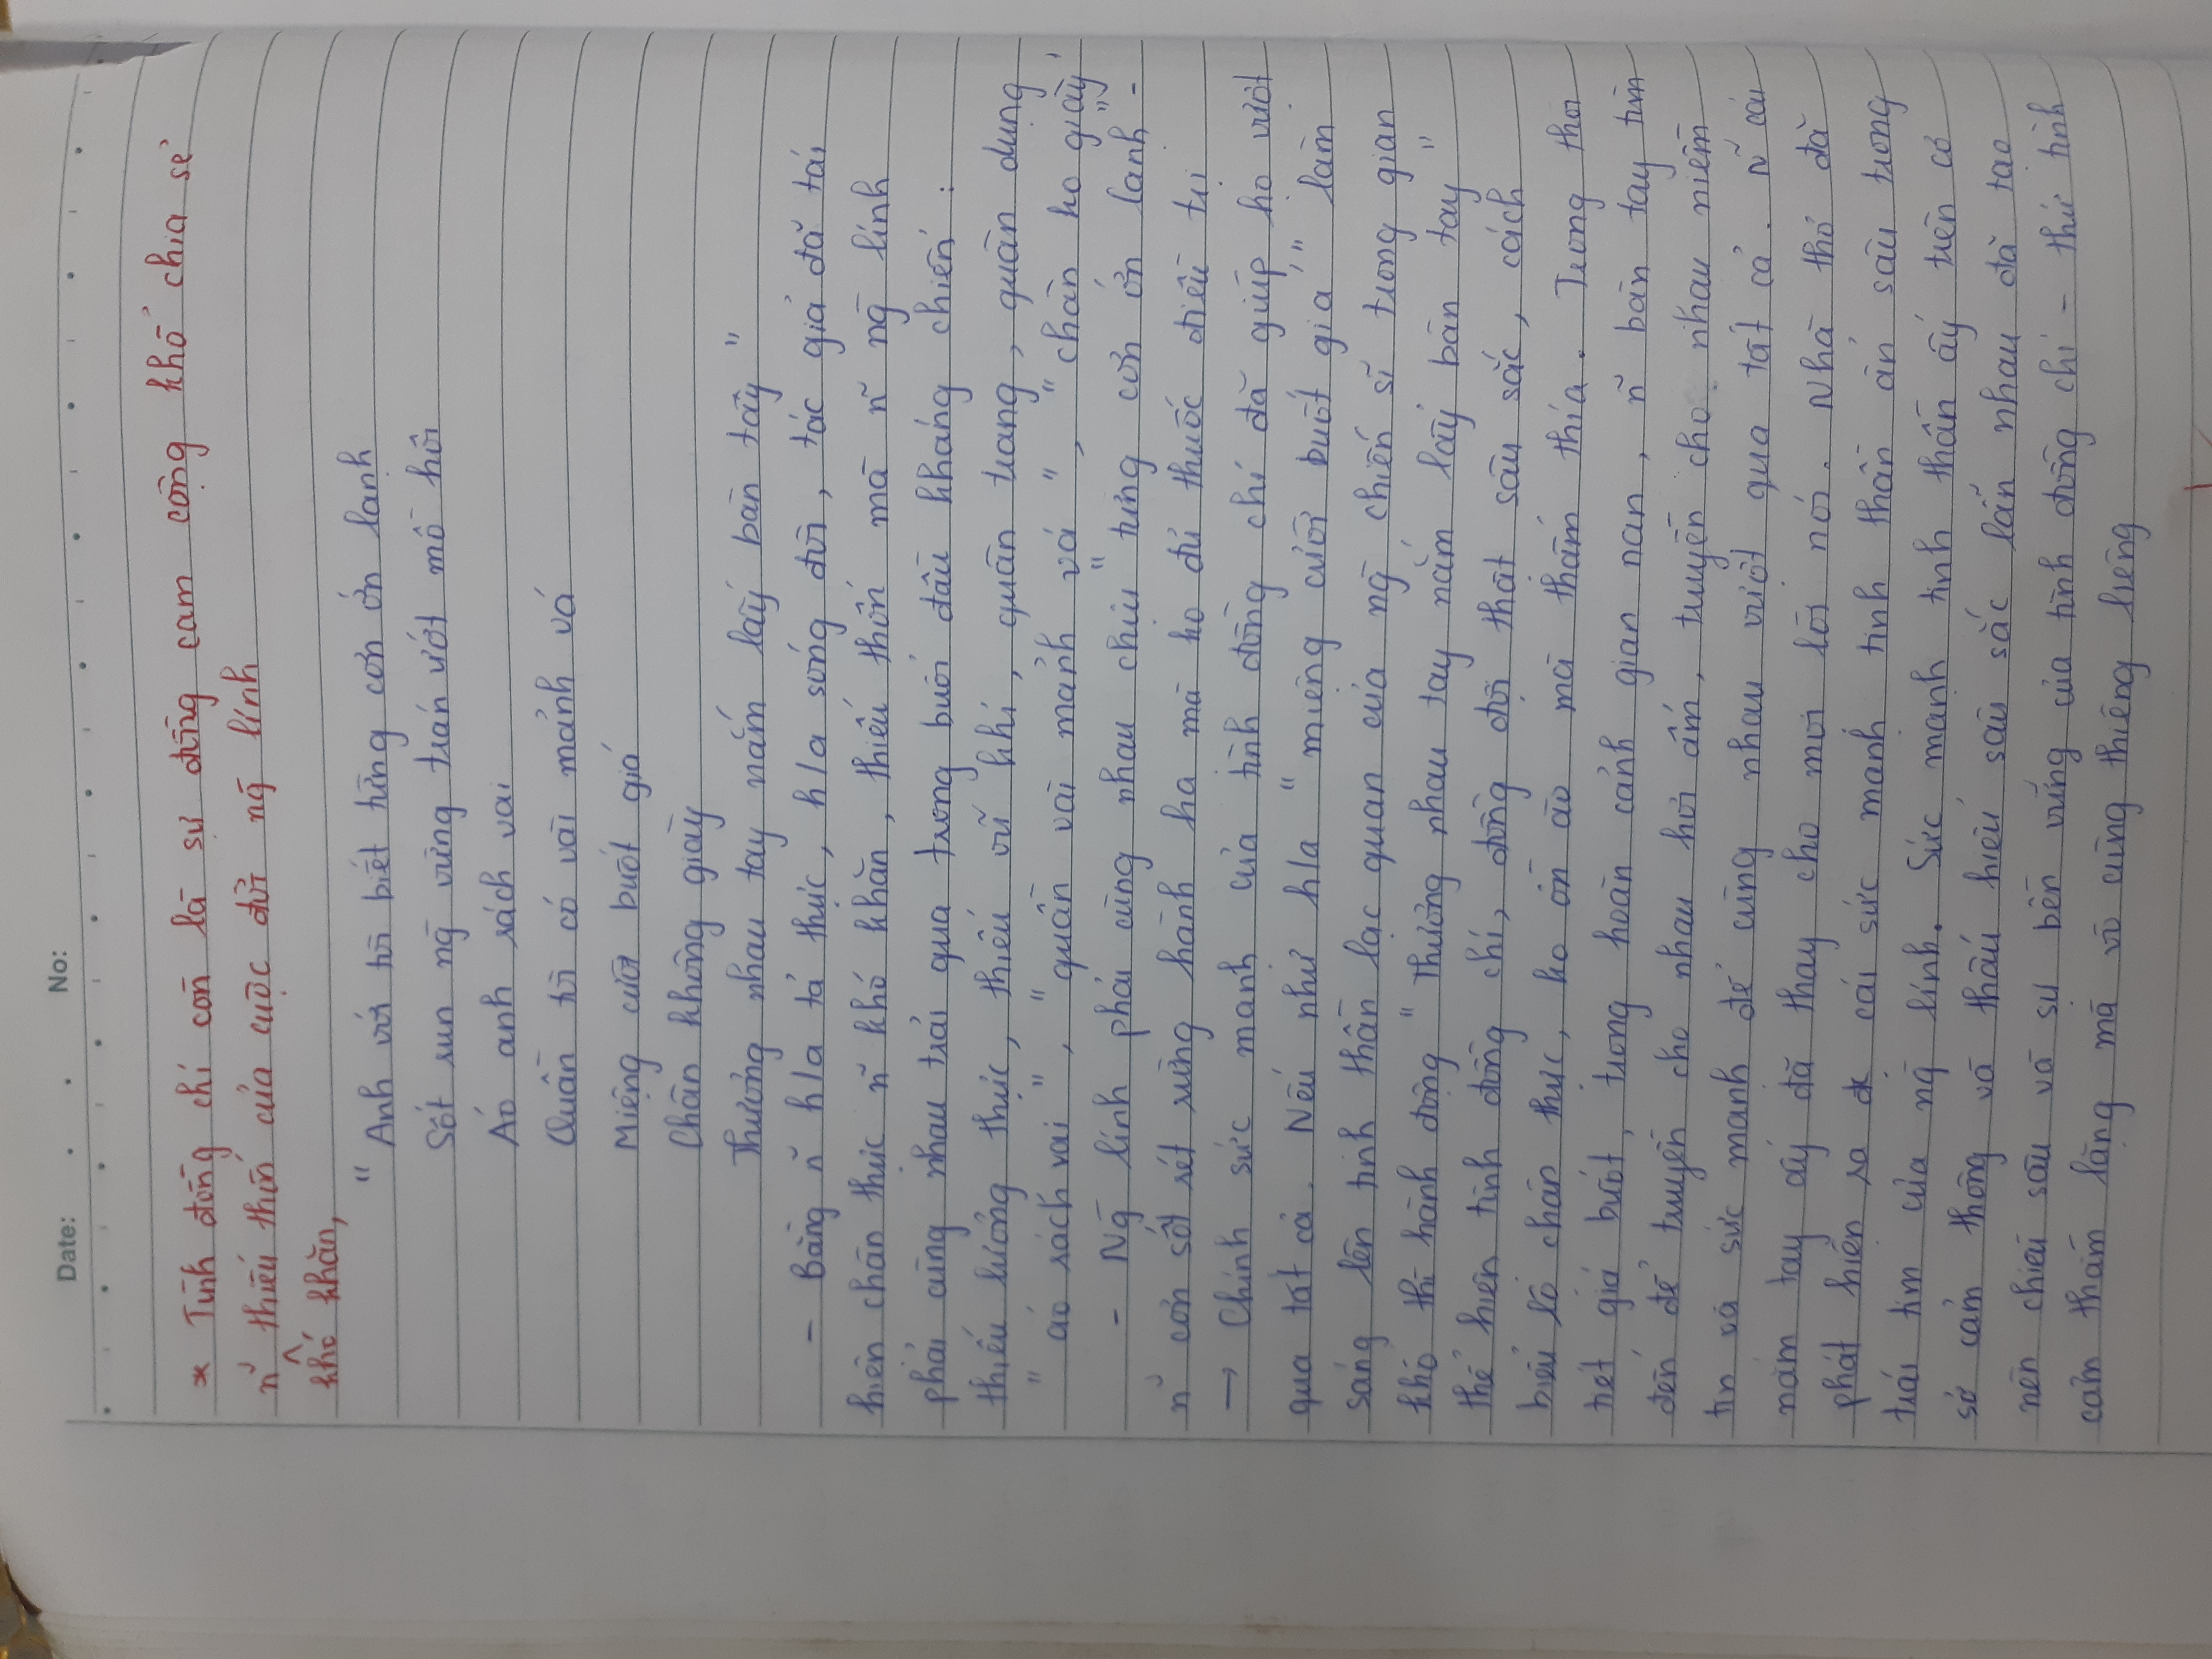 Date: . . No:
* Tình đồng chí còn là sự đồng cam cộng khổ chia sẻ
n~ thiếu thốn của cuộc đời ng` lính
^
khó khăn,
"Anh với tôi biết từng cơn ớn lạnh
Sốt run ng` vừng trán ướt mồ hôi
Áo anh rách vai
Quần tôi có vài mảnh vá
Miệng cười buốt giá
Chân không giày
Thương nhau tay nắm lấy bàn tay"
- Bằng n~ h/a tả thực, h/a sóng đôi, tác giả đã tái
hiện chân thực n~ khó khăn, thiếu thốn mà n~ ng` lính
phải cùng nhau trải qua trong buổi đầu kháng chiến:
thiếu lương thực, thiếu vũ khí, quân trang, quân dụng
"áo rách vai", "quần vài mảnh vá", "chân ko giày"
- Ng` lính phải cùng nhau chịu "từng cơn ớn lạnh" -
n~ cơn sốt rét rừng hành hạ mà ko đủ thuốc điều trị
→ Chính sức mạnh của tình đồng chí đã giúp họ vượt
qua tất cả. Nếu như h/a "miệng cười buốt giá" làm
sáng lên tinh thần lạc quan của ng` chiến sĩ trong gian
khó thì hành động "Thương nhau tay nắm lấy bàn tay"
thể hiện tình đồng chí, đồng đội thật sâu sắc, cách
biểu lộ chân thực, ko ồn ào mà thấm thía. Trong thời
tiết giá buốt, trong hoàn cảnh gian nan, n~ bàn tay tìm
đến để truyền cho nhau hơi ấm, truyền cho nhau niềm
tin và sức mạnh để cùng nhau vượt qua tất cả. N~ cái
nắm tay ấy đã thay cho mọi lời nói. Nhà thơ đã
phát hiện ra cái sức mạnh tinh thần ẩn sâu trong
trái tim của ng` lính. Sức mạnh tinh thần ấy trên cơ
sở cảm thông và thấu hiểu sâu sắc lẫn nhau đã tạo
nên chiều sâu và sự bền vững của tình đồng chí - thứ tình
cảm thầm lặng mà vô cùng thiêng liêng